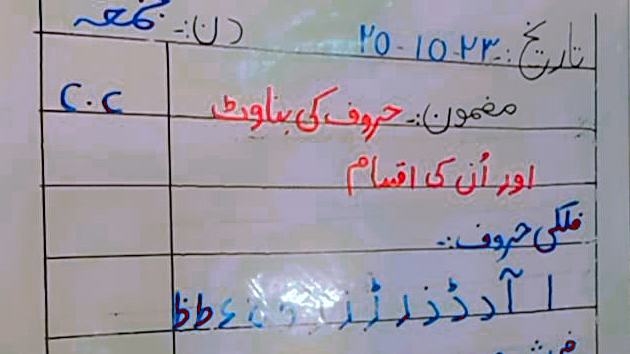 تاریخ:۔ ۲۳-10-۲۵ دن:۔ جمعہ
مضمون:۔ حروف کی بناوٹ C.C
اور اُن کی اقسام
فلکی حروف:۔
ا آ د ڈ ذ ر ڑ ز ء ط ظ